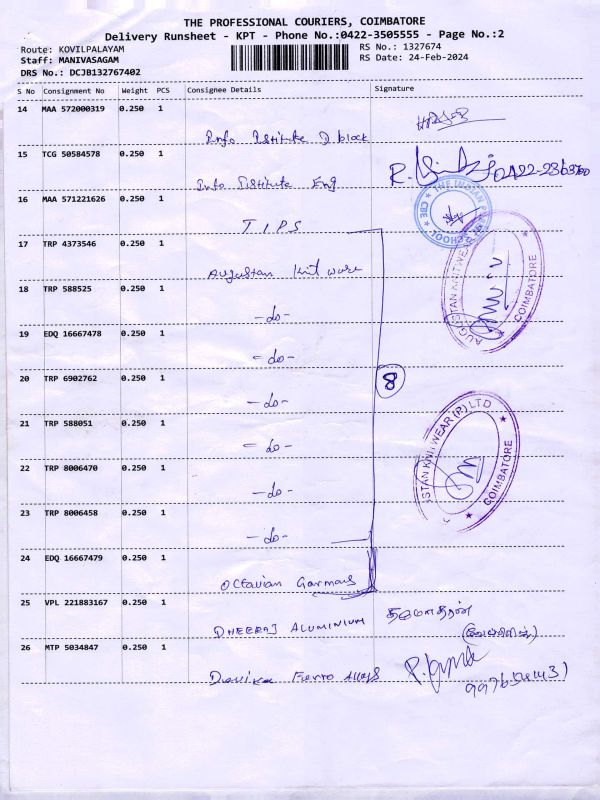 THE PROFESSIONAL COURIERS, COIMBATORE
Delivery Runsheet - KPT - Phone No.:0422-3505555 - Page No.:2
Route: KOVILPALAYAM
RS No.: 1327674
Staff: MANIVASAGAM
RS Date: 24-Feb-2024
DRS No.: DCJB132767402
S No Consignment No Weight PCS Consignee Details Signature
14 MAA 572000319 0.250 1
Info Istitute D block
15 TCG 50584578 0.250 1
Info Istitute Eng
16 MAA 571221626 0.250 1
T I P S
17 TRP 4373546 0.250 1
Augustan Knit ware
18 TRP 588525 0.250 1
-do-
19 EDQ 16667478 0.250 1
-do-
20 TRP 6902762 0.250 1
-do-
8
21 TRP 588051 0.250 1
-do-
22 TRP 8006470 0.250 1
-do-
23 TRP 8006458 0.250 1
-do-
24 EDQ 16667479 0.250 1
Octavian Garmans
25 VPL 221883167 0.250 1
DHEERAJ ALUMINIUM
26 MTP 5034847 0.250 1
Ferro Alloys
COIMBATORE
KNITWEAR (P) LTD
COIMBATORE